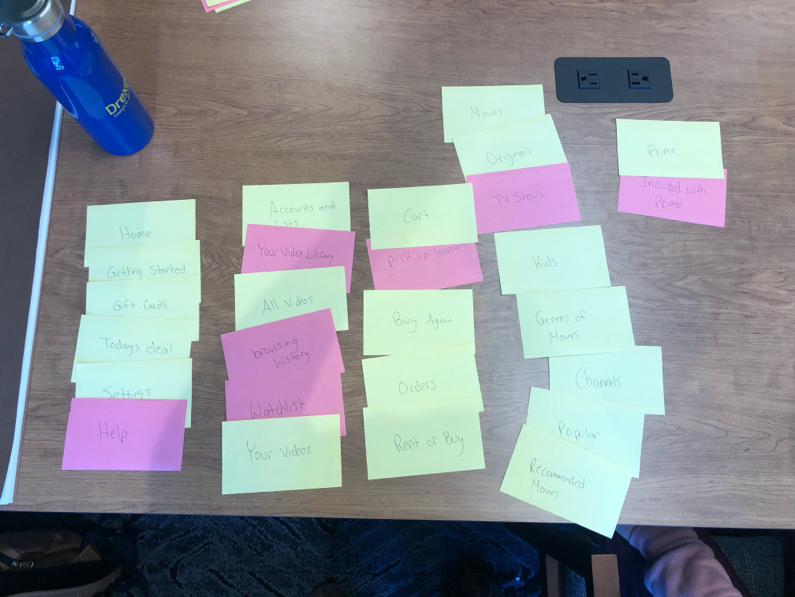 Drexe
Home
Getting Started
Gift Cards
Todays deal
Settings
Help
Accounts and
Lists
Your Video Library
All Videos
browsing
history
Watchlist
Your Videos
Cart
pick up location
Buy Again
Orders
Rent or Buy
Movies
Originals
TV Shows
Kids
Genres of
Movies
Channels
Popular
Recommended
Movies
Prime
Included with
Prime